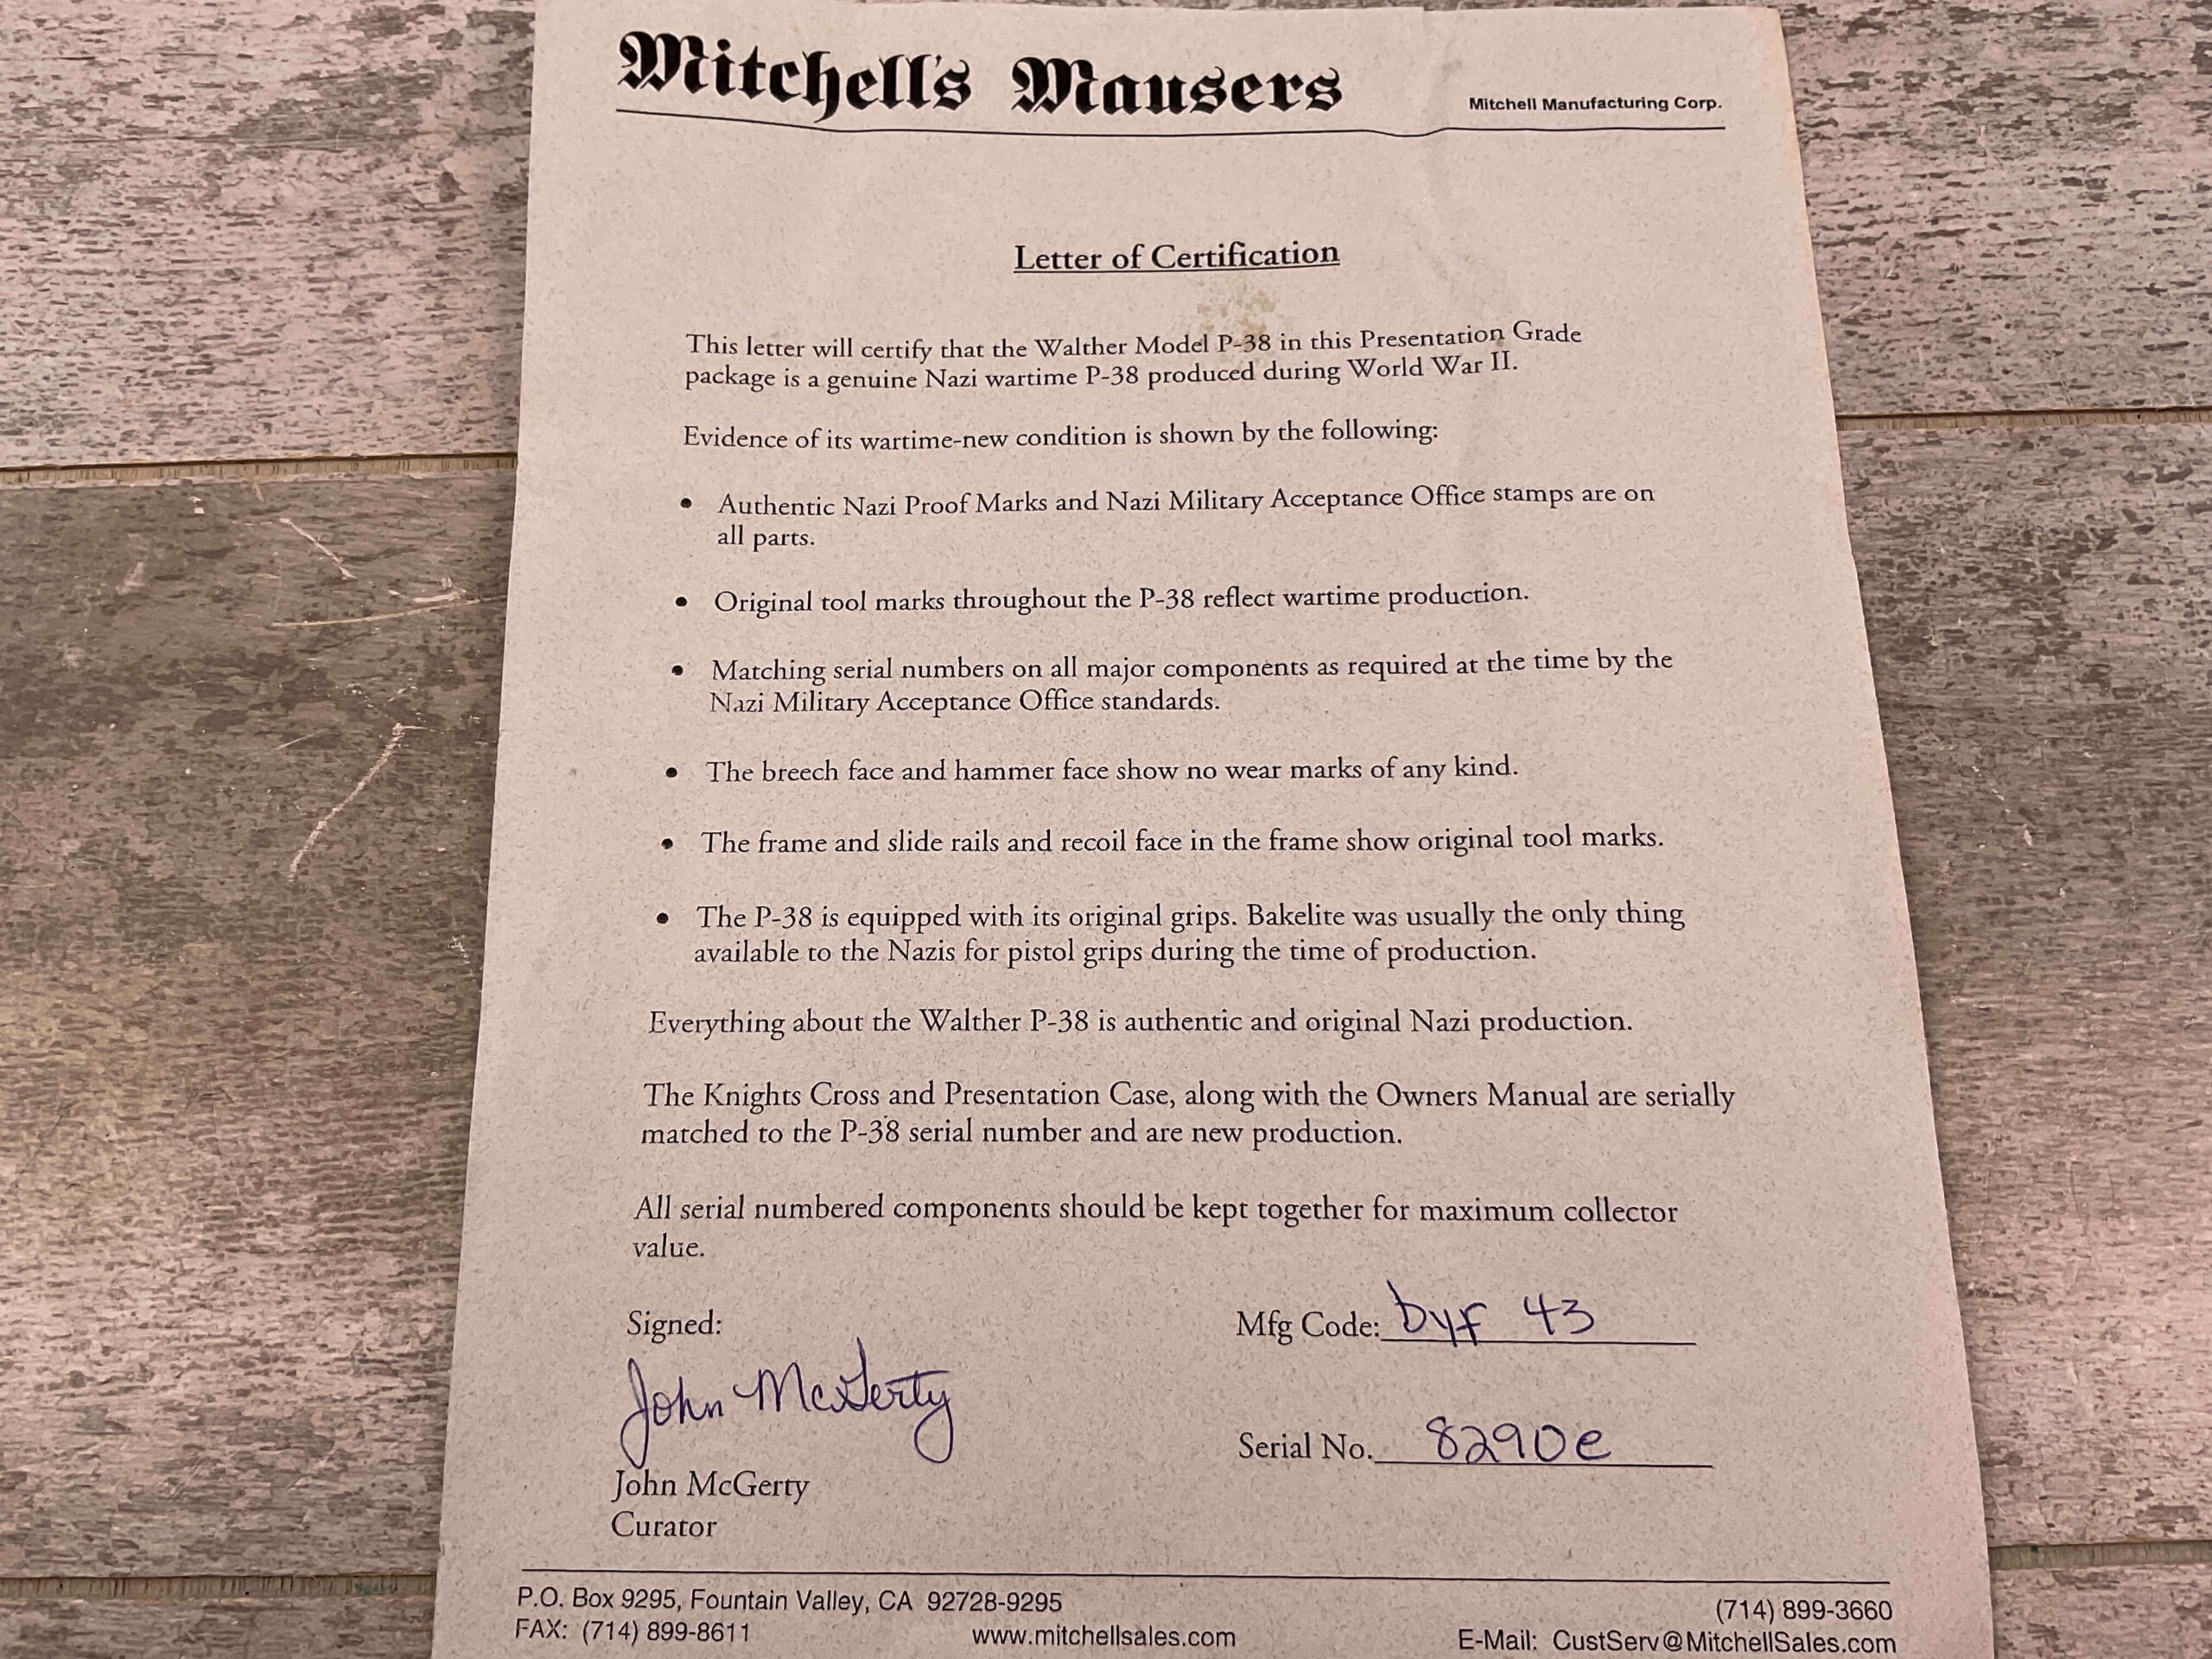 Mitchell's Mausers
Mitchell Manufacturing Corp.
Letter of Certification
This letter will certify that the Walther Model P-38 in this Presentation Grade
package is a genuine Nazi wartime P-38 produced during World War II.
Evidence of its wartime-new condition is shown by the following:
• Authentic Nazi Proof Marks and Nazi Military Acceptance Office stamps are on
all parts.
• Original tool marks throughout the P-38 reflect wartime production.
• Matching serial numbers on all major components as required at the time by the
Nazi Military Acceptance Office standards.
• The breech face and hammer face show no wear marks of any kind.
• The frame and slide rails and recoil face in the frame show original tool marks.
• The P-38 is equipped with its original grips. Bakelite was usually the only thing
available to the Nazis for pistol grips during the time of production.
Everything about the Walther P-38 is authentic and original Nazi production.
The Knights Cross and Presentation Case, along with the Owners Manual are serially
matched to the P-38 serial number and are new production.
All serial numbered components should be kept together for maximum collector
value.
Signed:
Mfg Code: byf 43
John McGerty
Serial No. 8290e
John McGerty
Curator
P.O. Box 9295, Fountain Valley, CA 92728-9295
(714) 899-3660
FAX: (714) 899-8611
www.mitchellsales.com
E-Mail: CustServ@MitchellSales.com